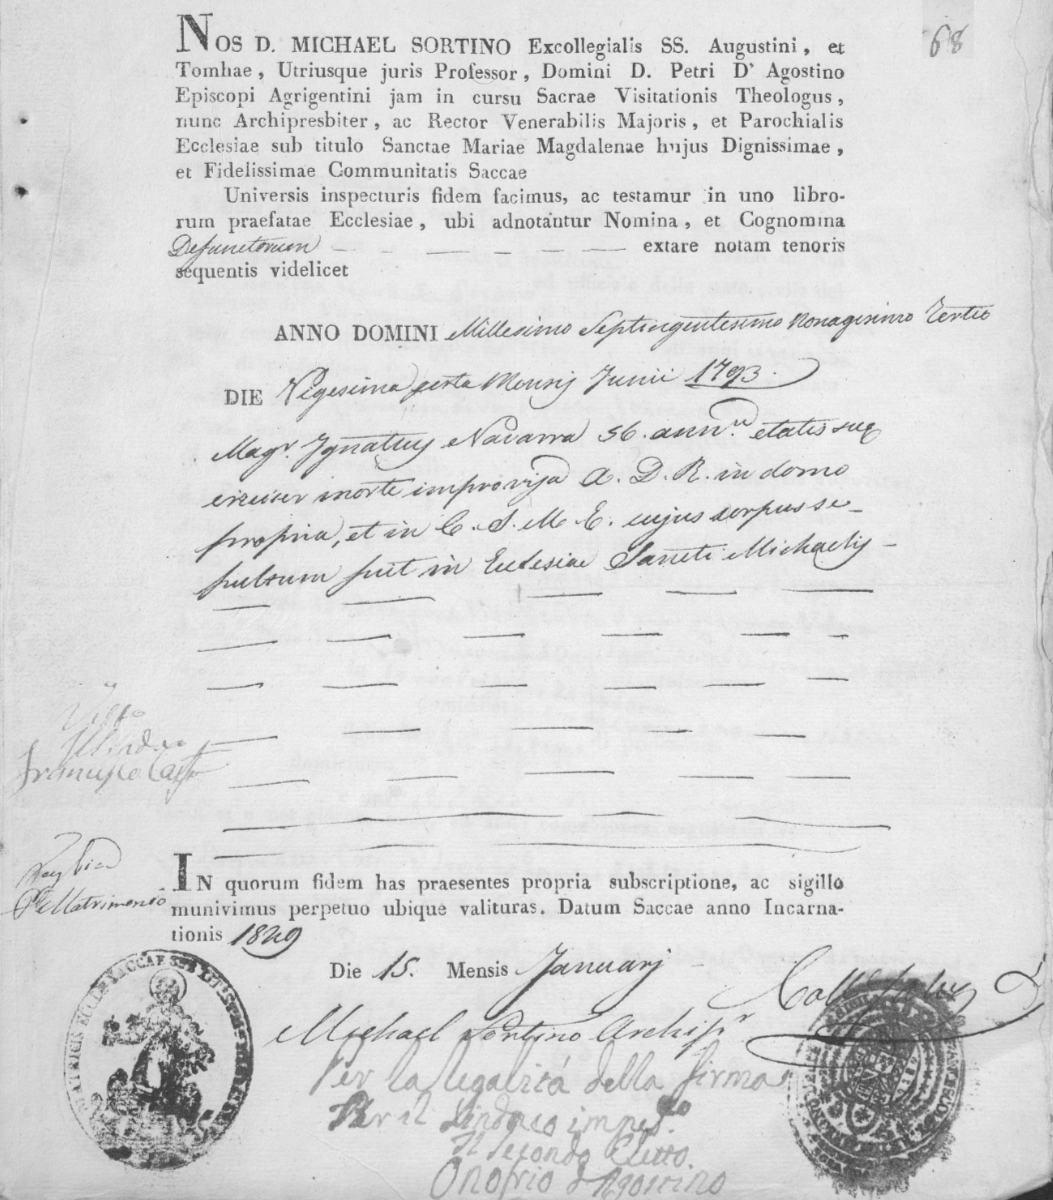 68
NOS D. MICHAEL SORTINO Excollegialis SS. Augustini, et
Tomhae, Utriusque juris Professor, Domini D. Petri D' Agostino
Episcopi Agrigentini jam in cursu Sacrae Visitationis Theologus,
nunc Archipresbiter, ac Rector Venerabilis Majoris, et Parochialis
Ecclesiae sub titulo Sanctae Mariae Magdalenae hujus Dignissimae,
et Fidelissimae Communitatis Saccae
Universis inspecturis fidem facimus, ac testamur in uno libro-
rum praefatae Ecclesiae, ubi adnotantur Nomina, et Cognomina
Defunctorum extare notam tenoris
sequentis videlicet
ANNO DOMINI Millesimo Septingentesimo Nonagesimo Tertio
DIE Vigesima sexta Mensis Junii 1793.
Magr. Ignatius Navarra 56. ann. etatis suę
morte improvisa A. D. R. in domo
propria, et in C. S. M. E. cujus corpus se-
pultum fuit in Ecclesia Sancti Michaelis
Francesco
Matrimonio
IN quorum fidem has praesentes propria subscriptione, ac sigillo
munivimus perpetuo ubique valituras. Datum Saccae anno Incarna-
tionis 1829
Die 15. Mensis Januarj
Michael Sortino Archipr
Per la legalità della firma
Per il Sindaco imped.to
Il secondo Eletto.
Onofrio d'Agostino